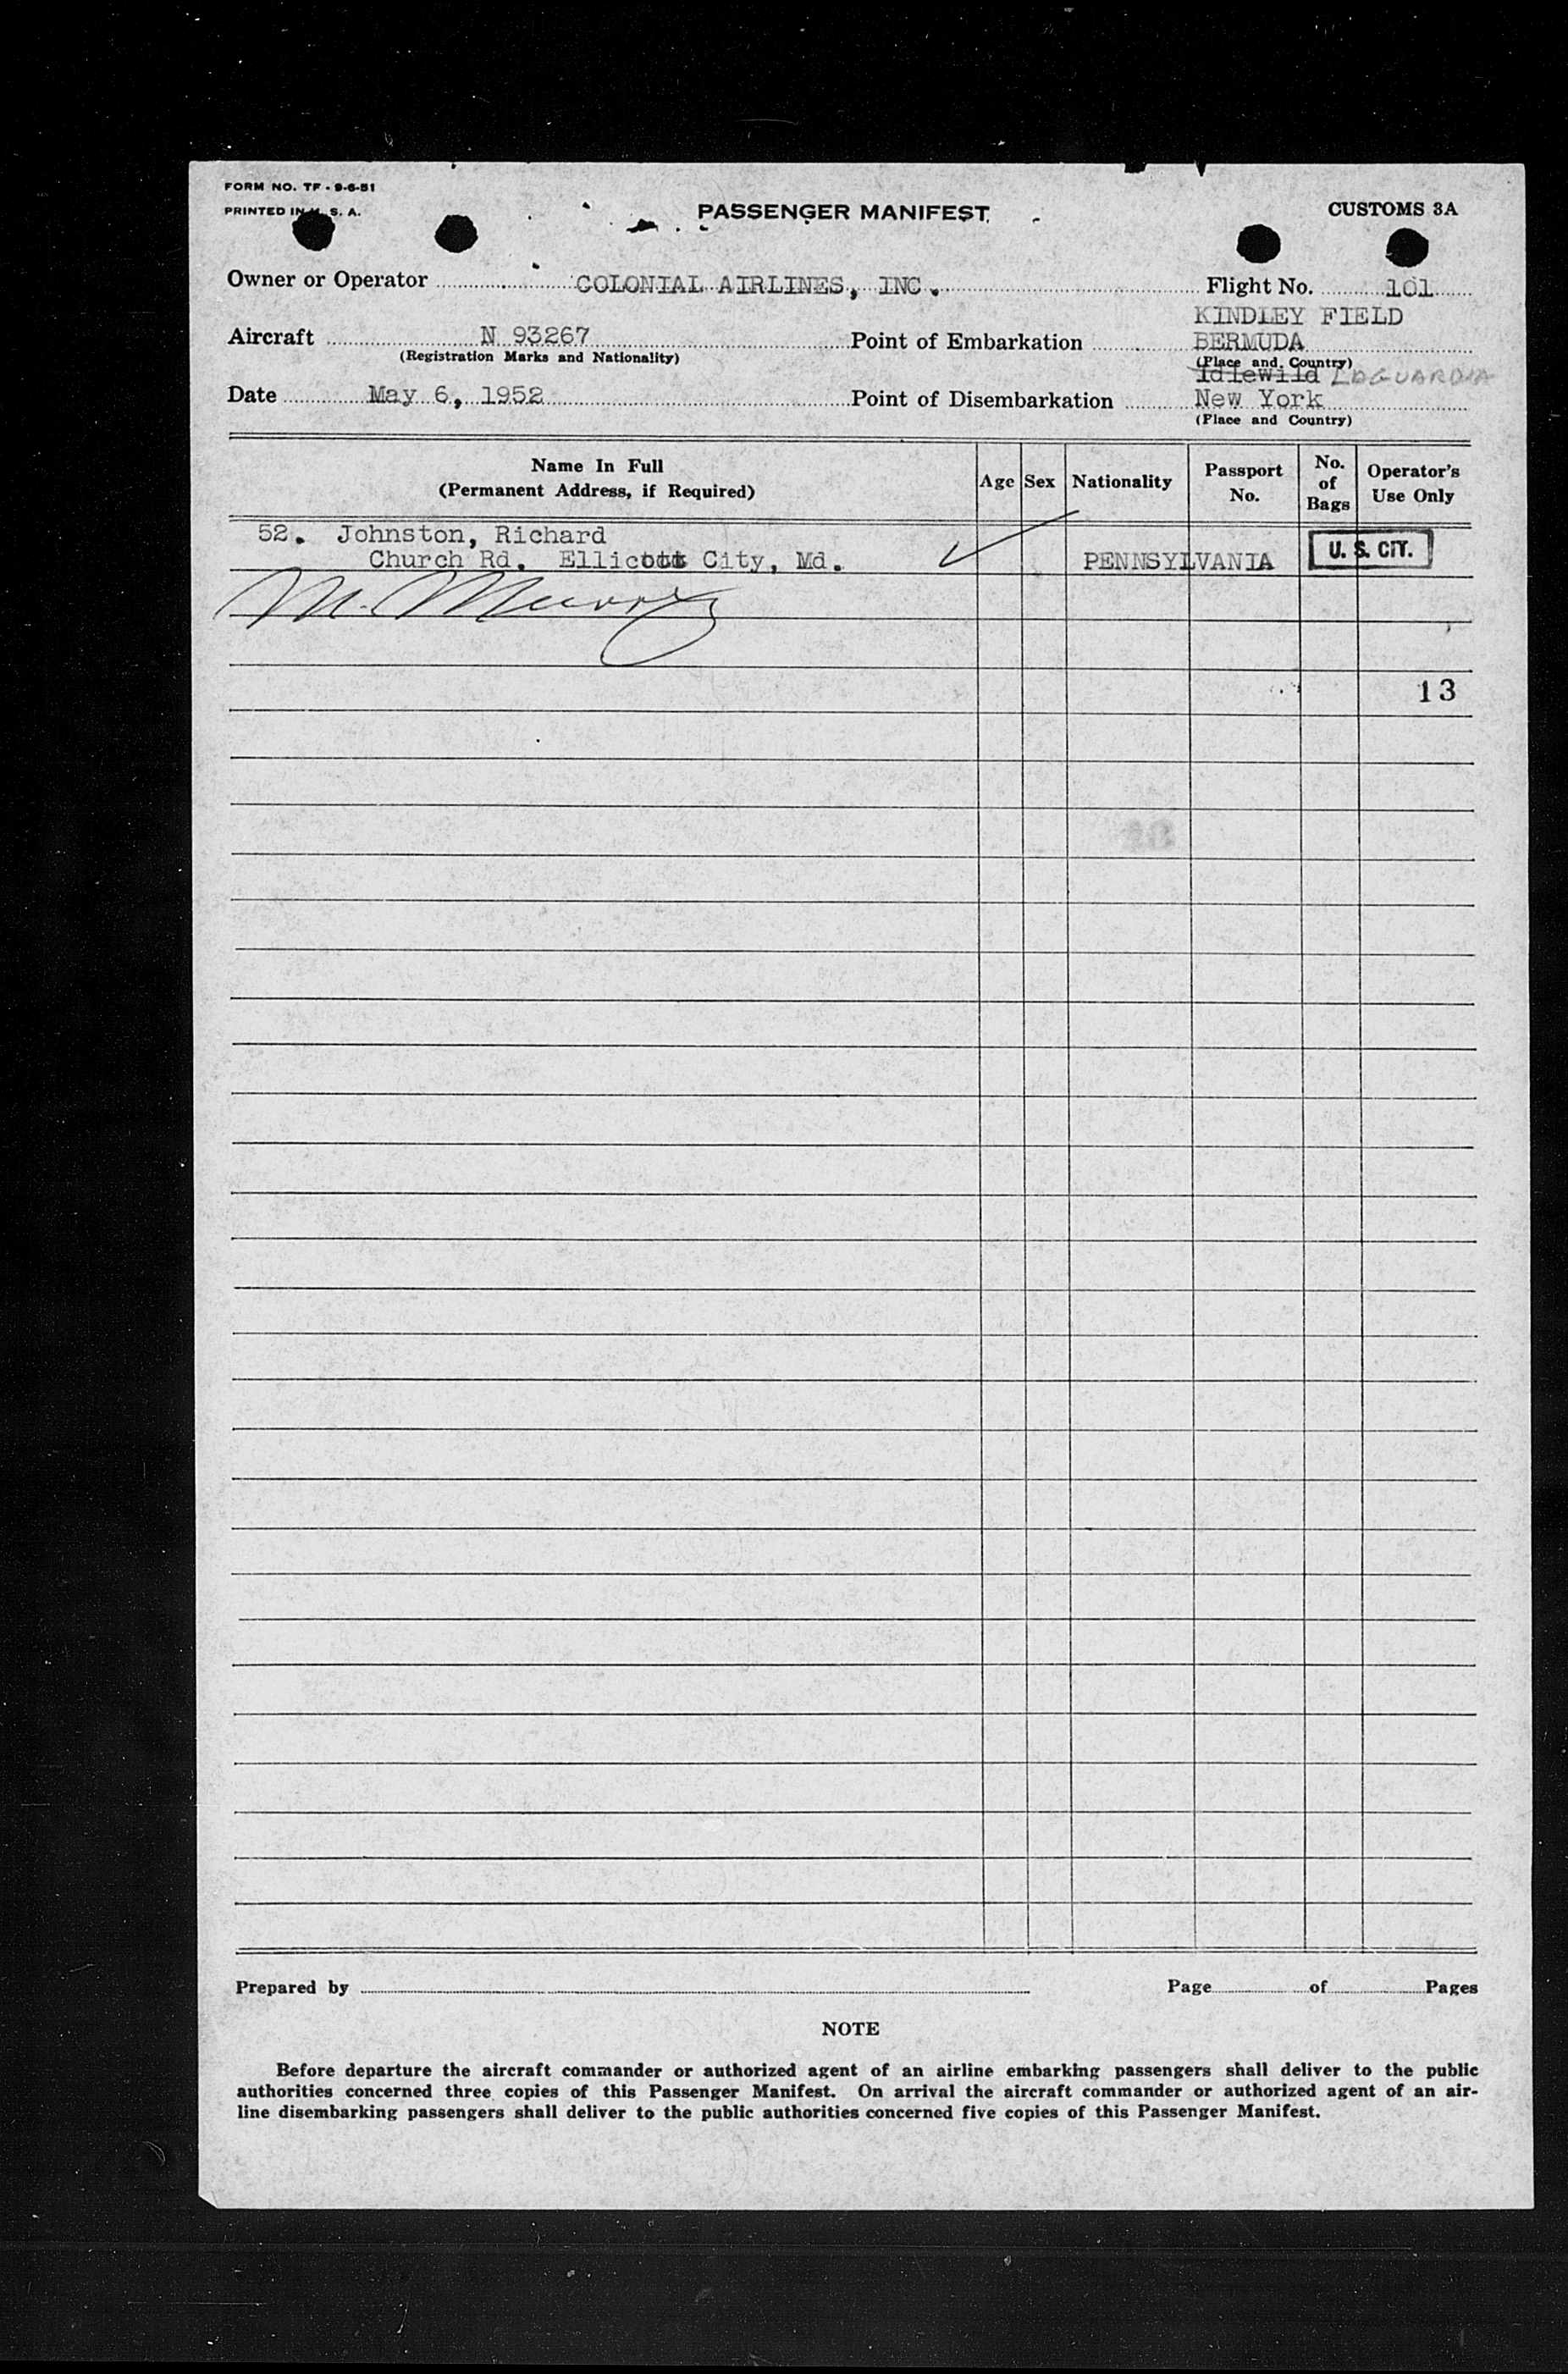 FORM NO. TF - 9-6-51
PRINTED IN U. S. A.
PASSENGER MANIFEST
CUSTOMS 3A
Owner or Operator COLONIAL AIRLINES, INC. Flight No. 101
Aircraft N 93267 Point of Embarkation KINDLEY FIELD
BERMUDA
(Registration Marks and Nationality) (Place and Country)
Idlewild LAGUARDIA
Date May 6, 1952 Point of Disembarkation New York
(Place and Country)
Name In Full
(Permanent Address, if Required)
Age Sex Nationality Passport No. No. of Bags Operator's Use Only
52. Johnston, Richard
Church Rd. Ellicott City, Md. PENNSYLVANIA U. S. CIT.
M. Murray
13
Prepared by Page of Pages
NOTE
Before departure the aircraft commander or authorized agent of an airline embarking passengers shall deliver to the public
authorities concerned three copies of this Passenger Manifest. On arrival the aircraft commander or authorized agent of an air-
line disembarking passengers shall deliver to the public authorities concerned five copies of this Passenger Manifest.